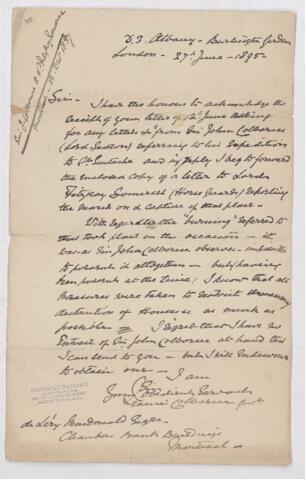 D. 3. Albany - Burlington Gardens
London - 27th June - 1895 -
Sir -
I have the honour to acknowledge the
receipt of your letter of 12th June asking
for any letters from Sir John Colborne
(Lord Seaton) referring to his Expedition
to St Eustache and in reply I beg to forward
the enclosed copy of a letter to Lord
Fitzroy Somerset (Horse Guards) reporting
the march on & capture of that place -
With regard to the "burning" referred to
that took place on the occasion - it
was as Sir John Colborne observes impossible
to prevent it altogether - but (having
been present at the time) I know that all
measures were taken to restrict
destruction of Houses as much as
possible = I regret that I have no
Portrait of Sir John Colborne at hand that
I can send to you - but will Endeavour
to obtain one -
I am
Your Obedient Servant
Colborne
de Léry Macdonald Esqre
Chambers Bank Buildings
Montreal -